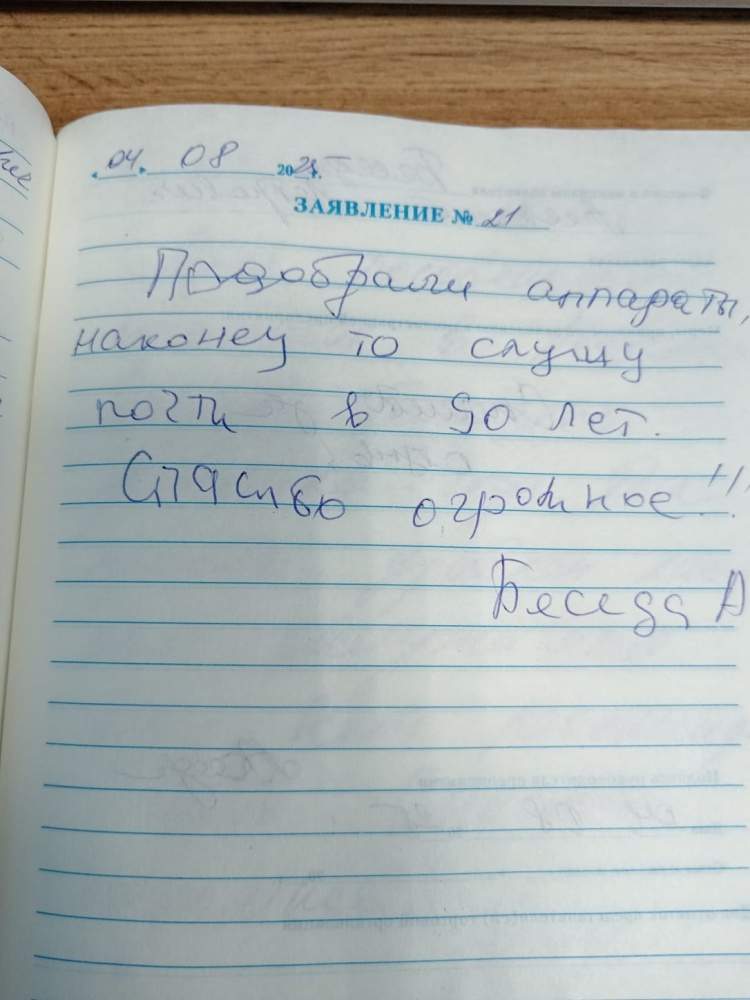 «04» 08 202 г.
ЗАЯВЛЕНИЕ № 21
Подобрали аппараты,
наконец то слышу
почти в 90 лет.
Спасибо огромное!!!
Беседа А